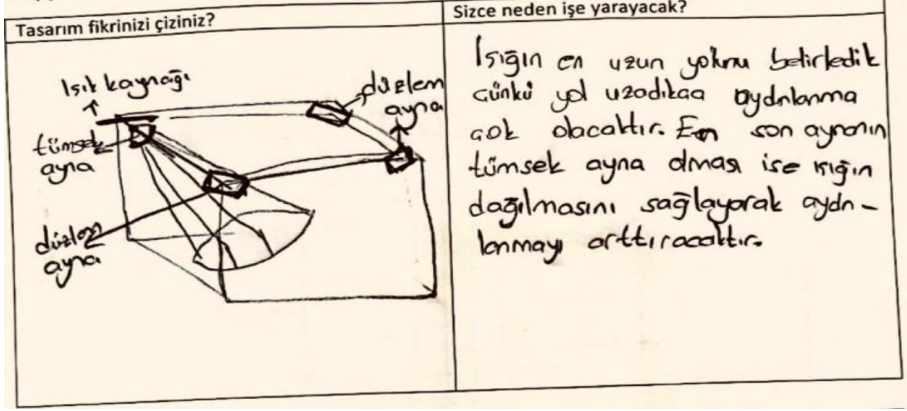 Tasarım fikrinizi çiziniz?
Işık kaynağı
düzlem
ayna
tümsek
ayna
düzlem
ayna
Sizce neden işe yarayacak?
Işığın en uzun yolunu belirledik
çünkü yol uzadıkça aydınlanma
çok olacaktır. En son aynanın
tümsek ayna olması ise ışığın
dağılmasını sağlayarak aydın-
lanmayı arttıracaktır.